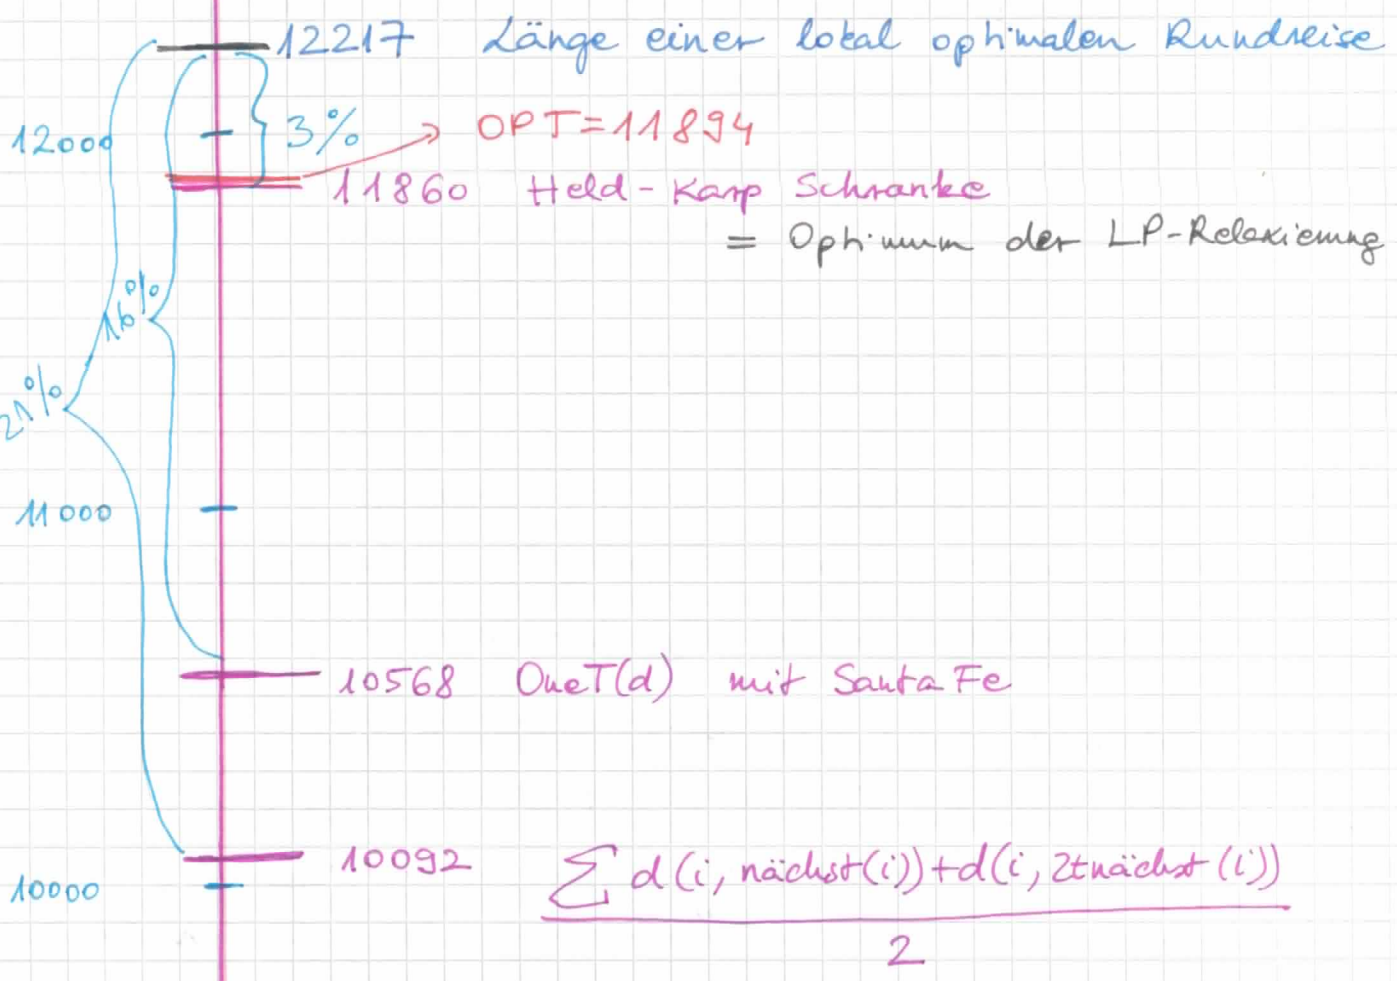 12217 Länge einer lokal optimalen Rundreise
12000
3%
OPT=11894
11860 Held-Karp Schranke
= Optimum der LP-Relaxierung
16%
21%
11000
10568 OneT(d) mit Santa Fe
10092 ∑ d(i, nächst(i))+d(i, 2tnächst(i))
10000
2